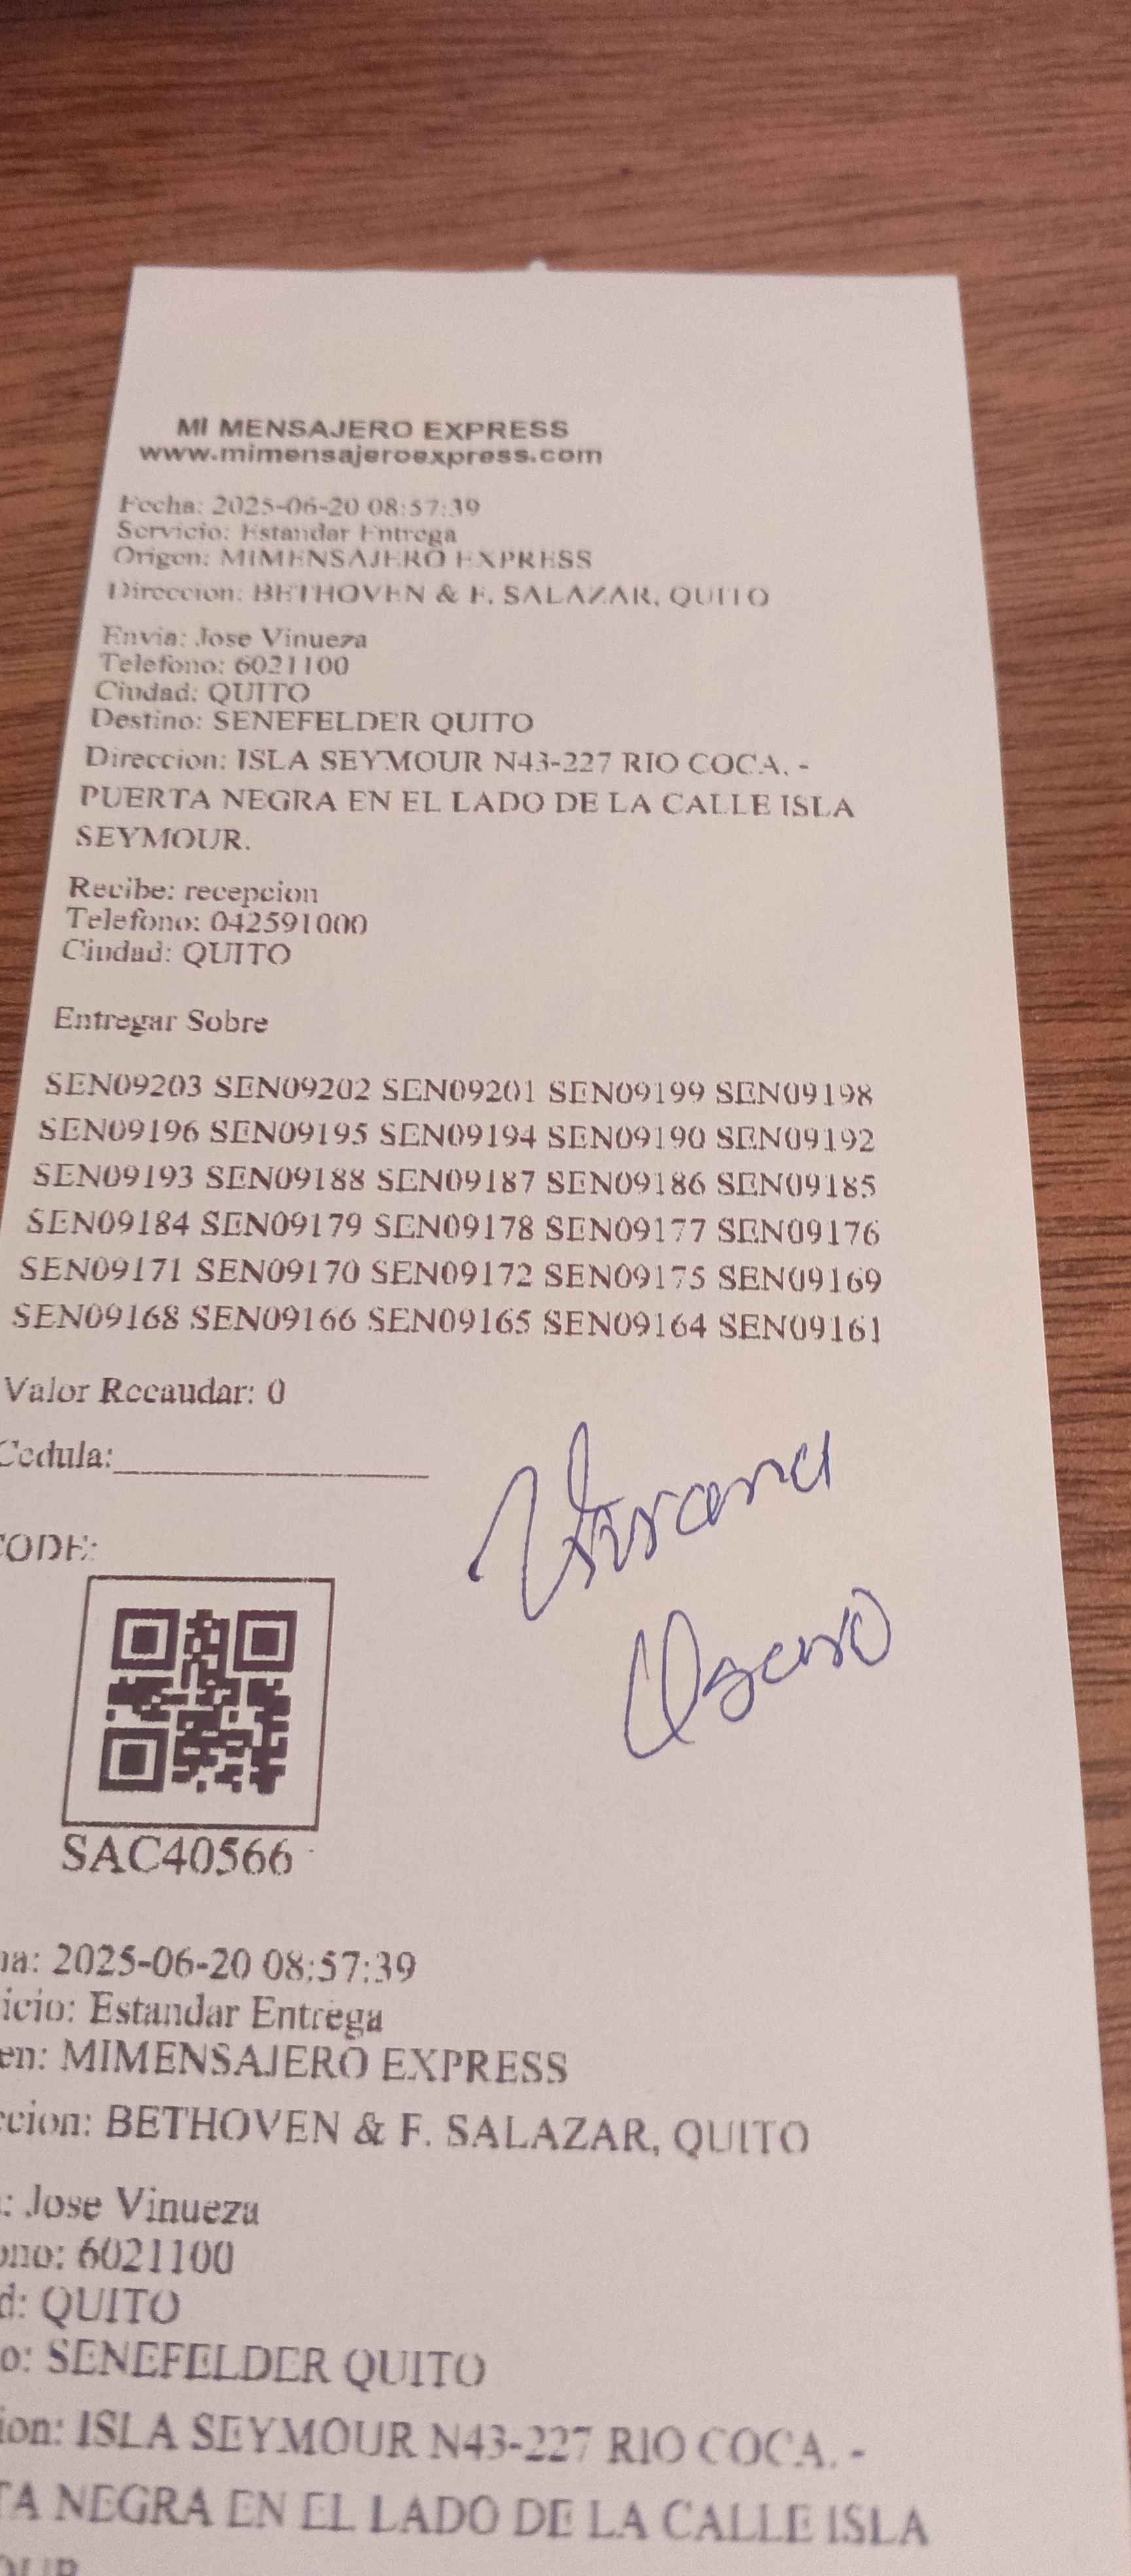 MI MENSAJERO EXPRESS
www.mimensajeroexpress.com
Fecha: 2025-06-20 08:57:39
Servicio: Estandar Entrega
Origen: MIMENSAJERO EXPRESS
Direccion: BETHOVEN & F. SALAZAR, QUITO
Envia: Jose Vinueza
Telefono: 6021100
Ciudad: QUITO
Destino: SENEFELDER QUITO
Direccion: ISLA SEYMOUR N43-227 RIO COCA. -
PUERTA NEGRA EN EL LADO DE LA CALLE ISLA
SEYMOUR.
Recibe: recepcion
Telefono: 042591000
Ciudad: QUITO
Entregar Sobre
SEN09203 SEN09202 SEN09201 SEN09199 SEN09198
SEN09196 SEN09195 SEN09194 SEN09190 SEN09192
SEN09193 SEN09188 SEN09187 SEN09186 SEN09185
SEN09184 SEN09179 SEN09178 SEN09177 SEN09176
SEN09171 SEN09170 SEN09172 SEN09175 SEN09169
SEN09168 SEN09166 SEN09165 SEN09164 SEN09161
Valor Recaudar: 0
Cedula:
ODE:
SAC40566
a: 2025-06-20 08:57:39
icio: Estandar Entrega
en: MIMENSAJERO EXPRESS
cion: BETHOVEN & F. SALAZAR, QUITO
: Jose Vinueza
ono: 6021100
d: QUITO
o: SENEFELDER QUITO
ion: ISLA SEYMOUR N43-227 RIO COCA. -
TA NEGRA EN EL LADO DE LA CALLE ISLA